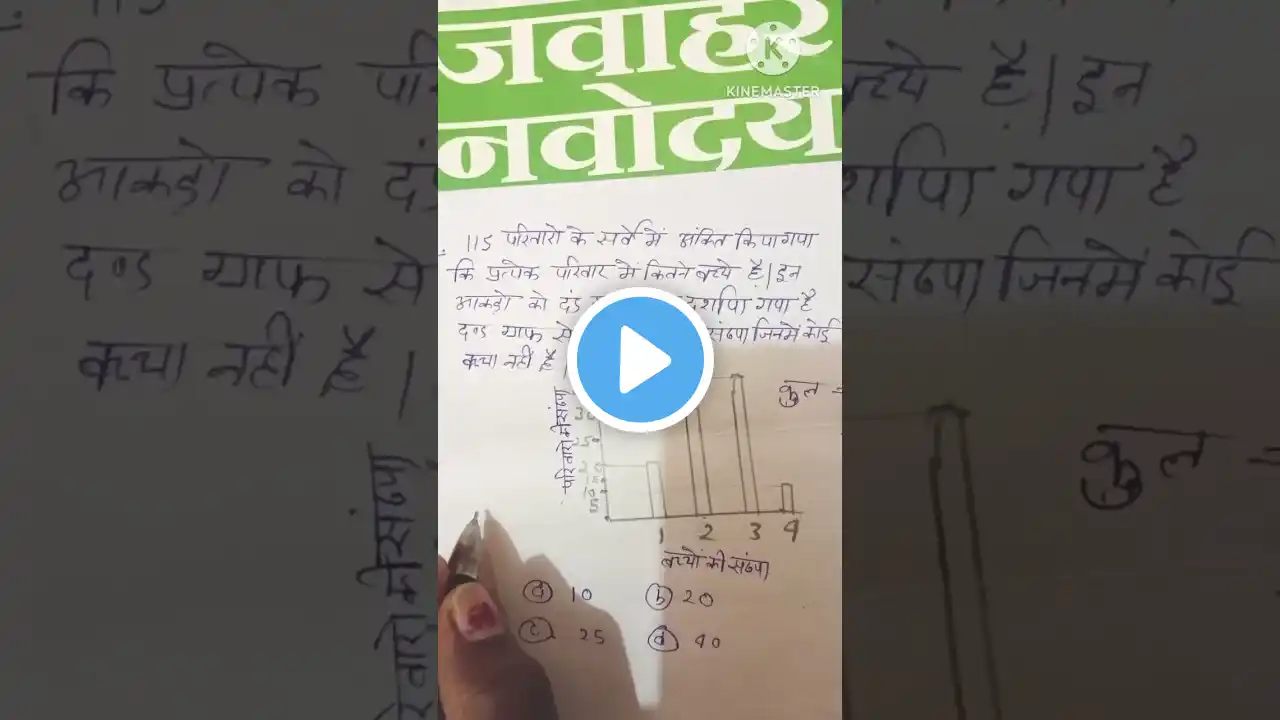 जवाहर
नवोदय
KINEMASTER
115 परिवारो के सर्वे में अंकित किया गया
कि प्रत्येक परिवार में कितने बच्चे है। इन
आकड़ो को दंड दर्शाया गया है
दण्ड ग्राफ से संख्या जिनमें कोई
बच्चा नहीं है।
कुल =
परिवारो की संख्या
30
25
20
15
10
5
1 2 3 4
बच्चों की संख्या
(a) 10 (b) 20
(c) 25 (d) 40